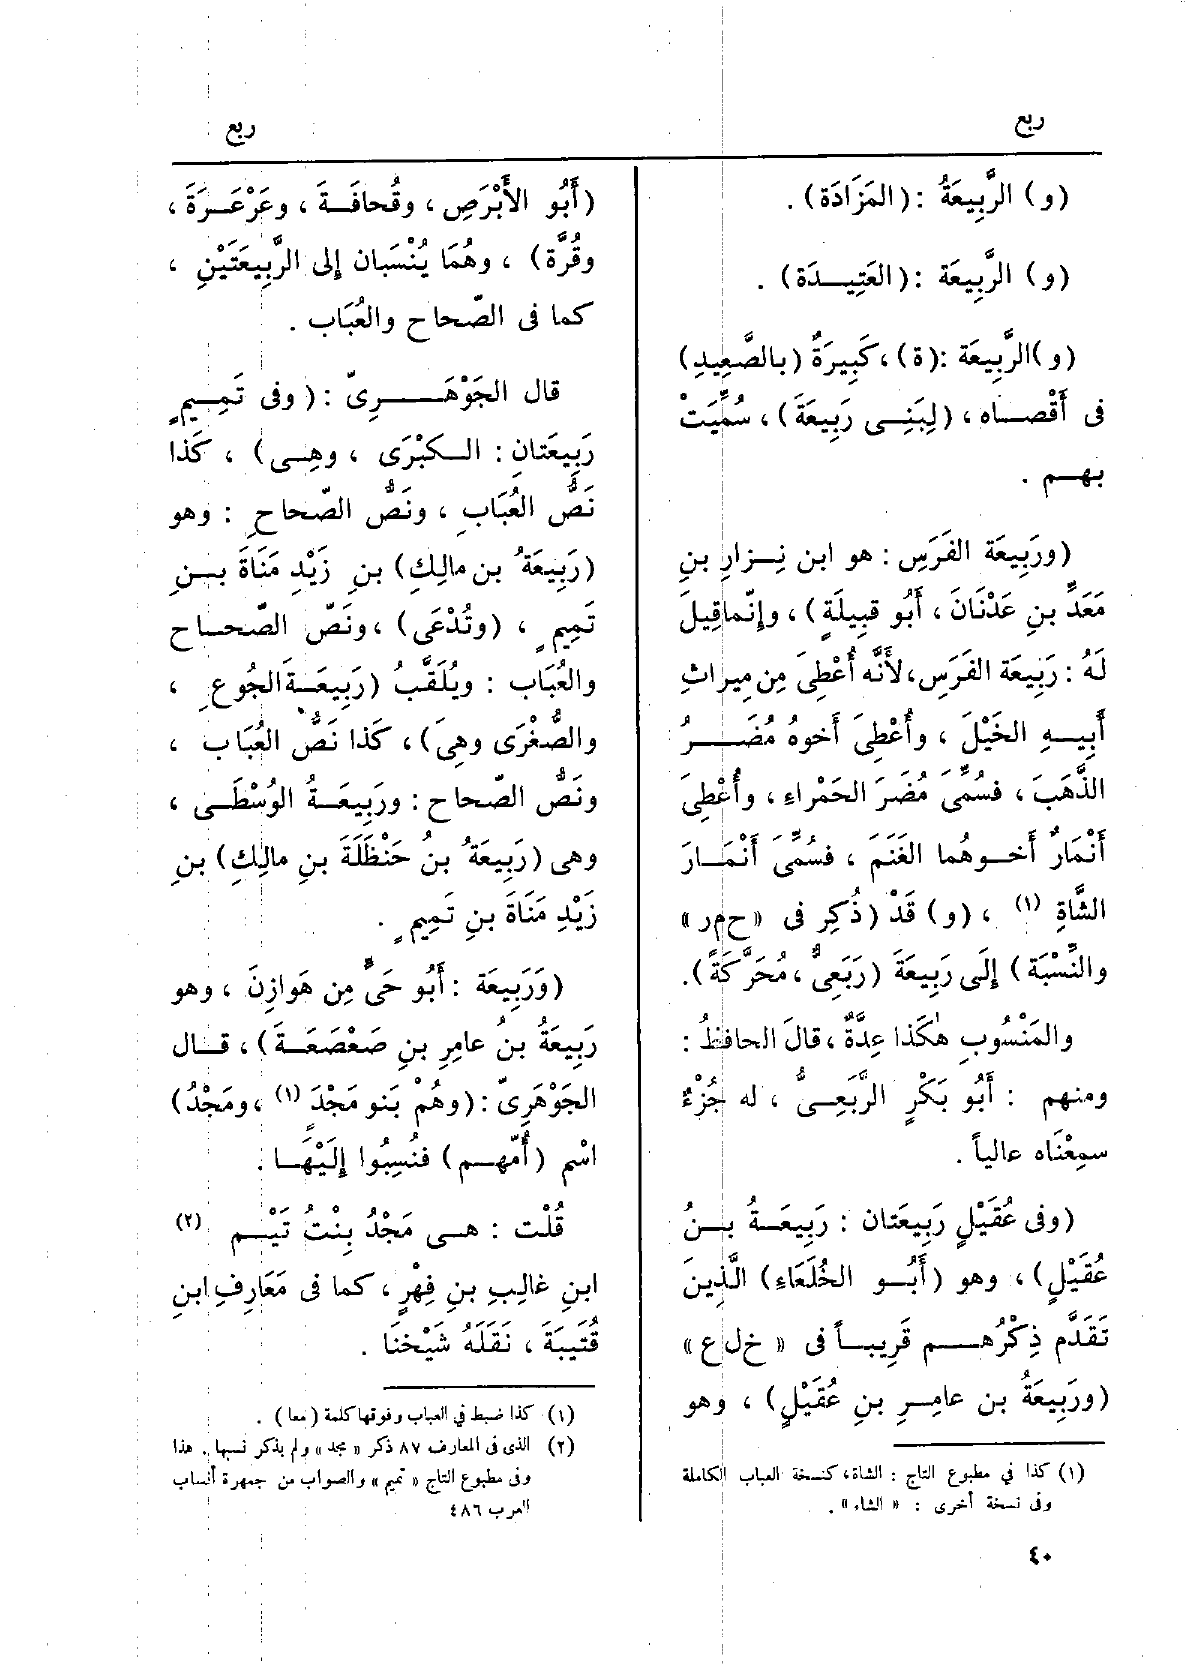 ربع
ربع
(و) الرَّبِيعَةُ : (المَزَادَة) .
(و) الرَّبِيعَة : (العَتِيـدَة) .
(و) الرَّبِيعَة : (ة) ، كَبِيرَةٌ (بالصَّعِيدِ)
فى أَقْصـاه ، (لِبَنِـى رَبِيعَة) ، سُمِّيَتْ
بهـم .
(ورَبِيعَة الفَرَسِ : هو ابن نِـزارِ بنِ
مَعَدِّ بنِ عَدْنَانَ ، أَبُو قبِيلَةٍ) ، وإِنَّما قِيلَ
لَهُ : رَبِيعَة الفَرَسِ، لأَنَّه أُعْطِىَ مِن مِيراثِ
أَبِيـهِ الخَيْلَ ، وأُعْطِىَ أَخوهُ مُضَـرُ
الذَّهَبَ ، فسُمِّىَ مُضَرَ الحَمْراءِ ، وأُعْطِىَ
أَنْمَارٌ أَخـوهُما الغَنَمَ ، فسُمِّىَ أَنْمَـارَ
الشَّاةِ (١) ، (و) قَدْ (ذُكِر فى «ح م ر»
والنِّسْبَة) إِلَى رَبِيعَةَ (رَبَعِىٌّ ، مُحَرَّكَةً) .
والمَنْسُوبِ هٰكَذا عِدَّةٌ ، قالَ الحافظُ :
ومنهم : أَبُو بَكْرٍ الرَّبَعِـىُّ ، له جُزْءٌ
سمِعْنَاه عالياً .
(وفى عُقَيْلٍ رَبِيعَتَان : رَبِيعَـةُ بـنُ
عُقَيْلٍ) ، وهو (أَبُـو الخُلَعَاءِ) الَّذِينَ
تَقَدَّم ذِكْرُهـم قَرِيبـاً فى « خ ل ع »
(ورَبِيعَةُ بن عامِـرِ بنِ عُقَيْلٍ) ، وهو
(١) كذا في مطبوع التاج : الشاة، كنسخة العباب الكاملة
وفى نسخة أخرى : « الشاء » .
(أَبُو الأَبْرَصِ ، وقُحافَـةَ ، وعَرْعَـرَةَ ،
وقُرَّة) ، وهُمَا يُنْسَبان إِلى الرَّبِيعَتَيْنِ ،
كما فى الصّحاح والعُبَاب .
قال الجَوْهَـرِىّ : ( وفى تَمِـيمٍ
رَبِيعَتانِ : الـكبْرَى ، وهِـى) ، كَذا
نَصُّ العُبَابِ ، ونَصُّ الصّحاحِ : وهو
(رَبِيعَةُ بن مالِكِ) بنِ زَيْدِ مَنَاةَ بـنِ
تَمِيمٍ ، (وتُدْعَى) ، ونَصّ الصّحـاح
والعُبَاب : ويُلَقَّبُ (رَبِيعَـةَ الجُوعِ ،
والصُّغْرَى وهِىَ) ، كَذا نَصُّ العُبَاب ،
ونَصُّ الصّحاح : ورَبِيعَـةُ الوُسْطَـى ،
وهى (رَبِيعَةُ بنُ حَنْظَلَةَ بنِ مالِكِ) بنِ
زَيْدِ مَنَاةَ بنِ تَمِيمٍ .
(وَرَبِيعَة : أَبُو حَىٍّ مِن هَوازِنَ ، وهو
رَبِيعَةُ بنُ عامِرِ بنِ صَعْصَعَـةَ) ، قـال
الجَوْهَرِىّ : (وهُمْ بَنو مَجْدٍ (١) ، ومَجْدُ)
اسْم (أُمّهـم) فنُسِبُوا إِلَيْهَـا .
قُلْت : هـى مَجْدُ بِنْتُ تَيْـم (٢)
ابنِ غالِبِ بنِ فِهْرٍ ، كما فى مَعَارِفِ ابنِ
قُتَيبَةَ ، نَقَلَهُ شَيْخنَا .
(١) كذا ضبط في العباب وفوقها كلمة (معا) .
(٢) الذى فى المعارف ٨٧ ذكر « مجد » ولم يذكر نسبها . هذا
وفى مطبوع التاج « تميم » والصواب من جمهرة أنساب
العرب ٤٨٦
٤٠